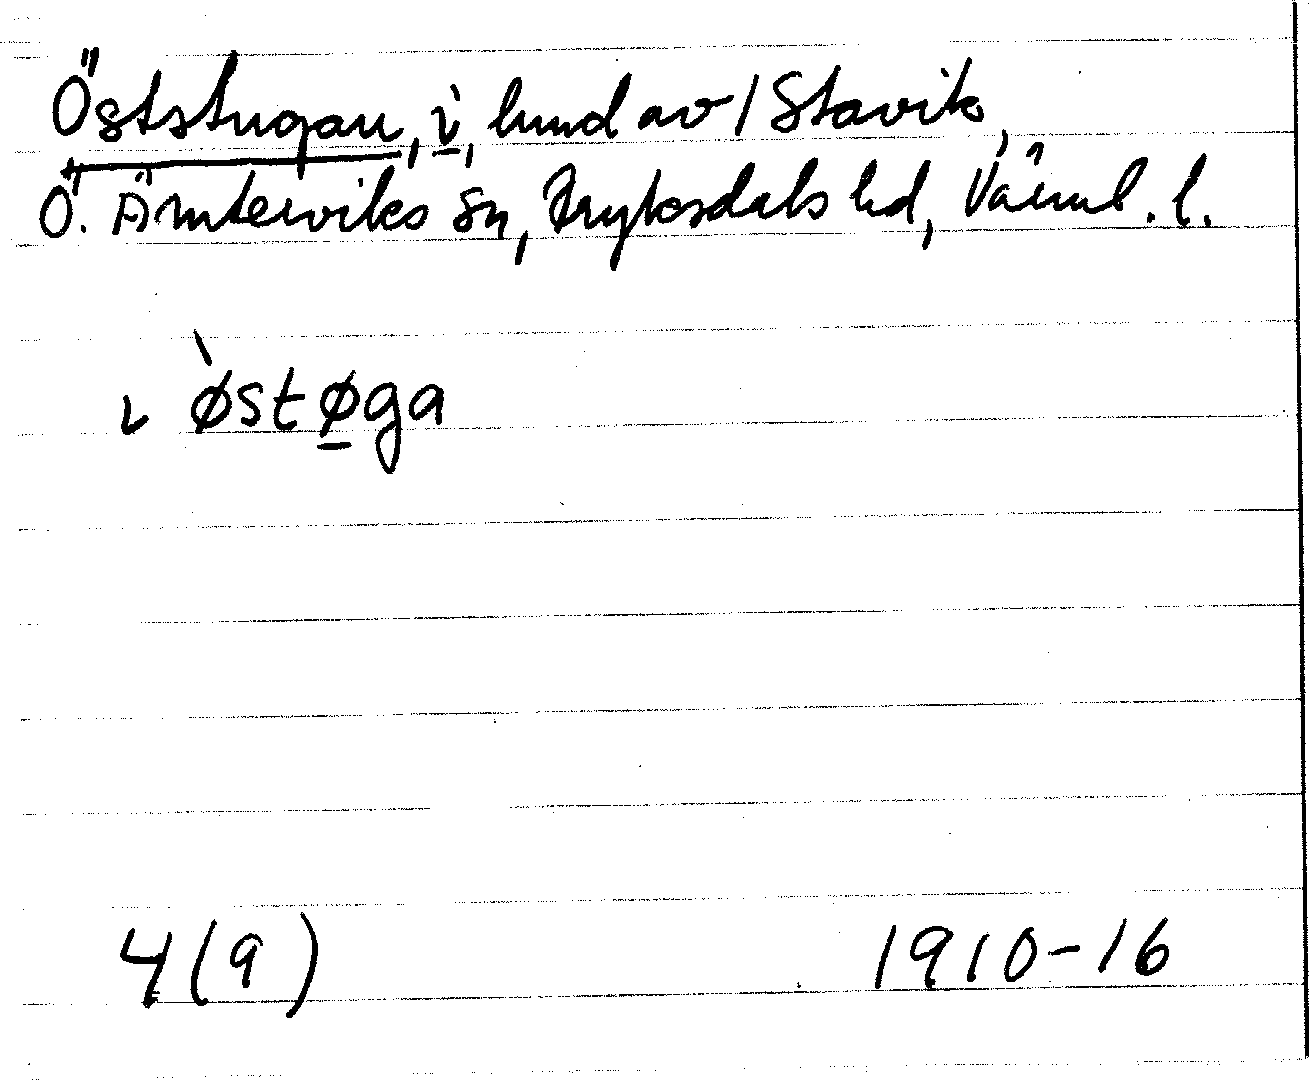 Öststugan, i, hmd av / Stavik,
Ö. Ämterviks sn, Fryksdals hd, Värml. l.
ı ̀østø̲ga
4(9)
1910-16